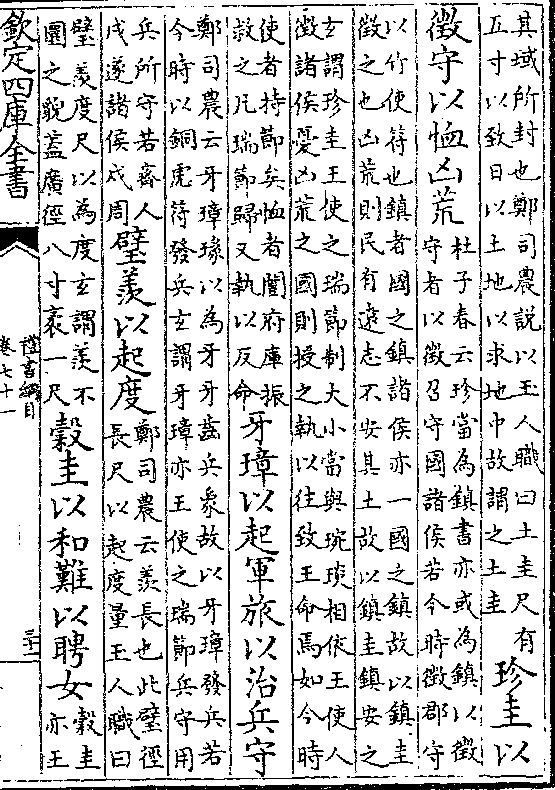 其域所封也鄭司農説以玉人職曰土圭尺有
五寸以致日以土地以求地中故謂之土圭
珍圭以
徵守以恤凶荒
杜子春云珍當為鎮書亦或為鎮以徵
守者以徵召守國諸侯若今時徵郡守
以竹使符也鎮者國之鎮諸侯亦一國之鎮故以鎮圭
徵之也凶荒則民有遠志不安其土故以鎮圭鎮安之
玄謂珍圭王使之瑞節制大小當與琬琰相依王使人
徵諸侯憂凶荒之國則授之執以往致王命焉如今時
使者持節矣恤者闓府庫振
救之凡瑞節歸又執以反命
牙璋以起軍旅以治兵守
鄭司農云牙璋瑑以為牙牙齒兵象故以牙璋發兵若
今時以銅虎符發兵玄謂牙璋亦王使之瑞節兵守用
兵所守若齊人
戍遂諸侯戍周
璧羨以起度
鄭司農云羨長也此璧徑
長尺以起度量玉人職曰
璧羨度尺以為度玄謂羨不
圜之貌蓋廣徑八寸袤一尺
穀圭以和難以聘女
穀圭
亦王
欽定四庫全書
禮書綱目
卷七十一